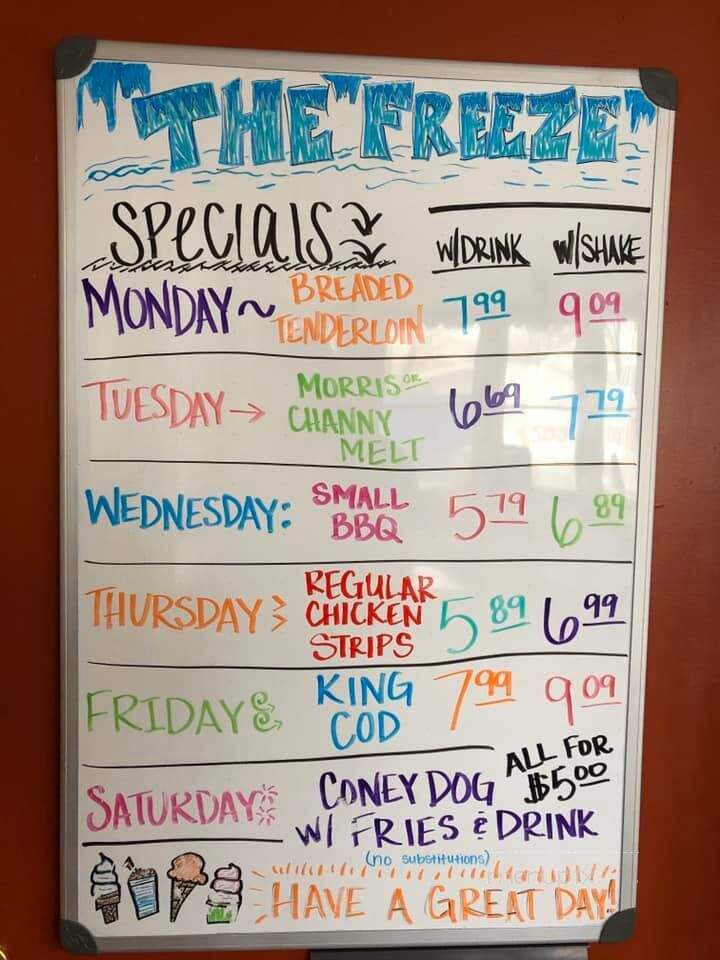 "THE FREEZE"
SPECIALS
W/DRINK W/SHAKE
MONDAY ~ BREADED TENDERLOIN 7.99 9.09
TUESDAY → MORRIS OR CHANNY MELT 6.69 7.79
WEDNESDAY: SMALL BBQ 5.79 6.89
THURSDAY REGULAR CHICKEN STRIPS 5.89 6.99
FRIDAY KING COD 7.99 9.09
SATURDAY CONEY DOG
W/ FRIES & DRINK
ALL FOR
$5.00
(no substitutions)
HAVE A GREAT DAY!